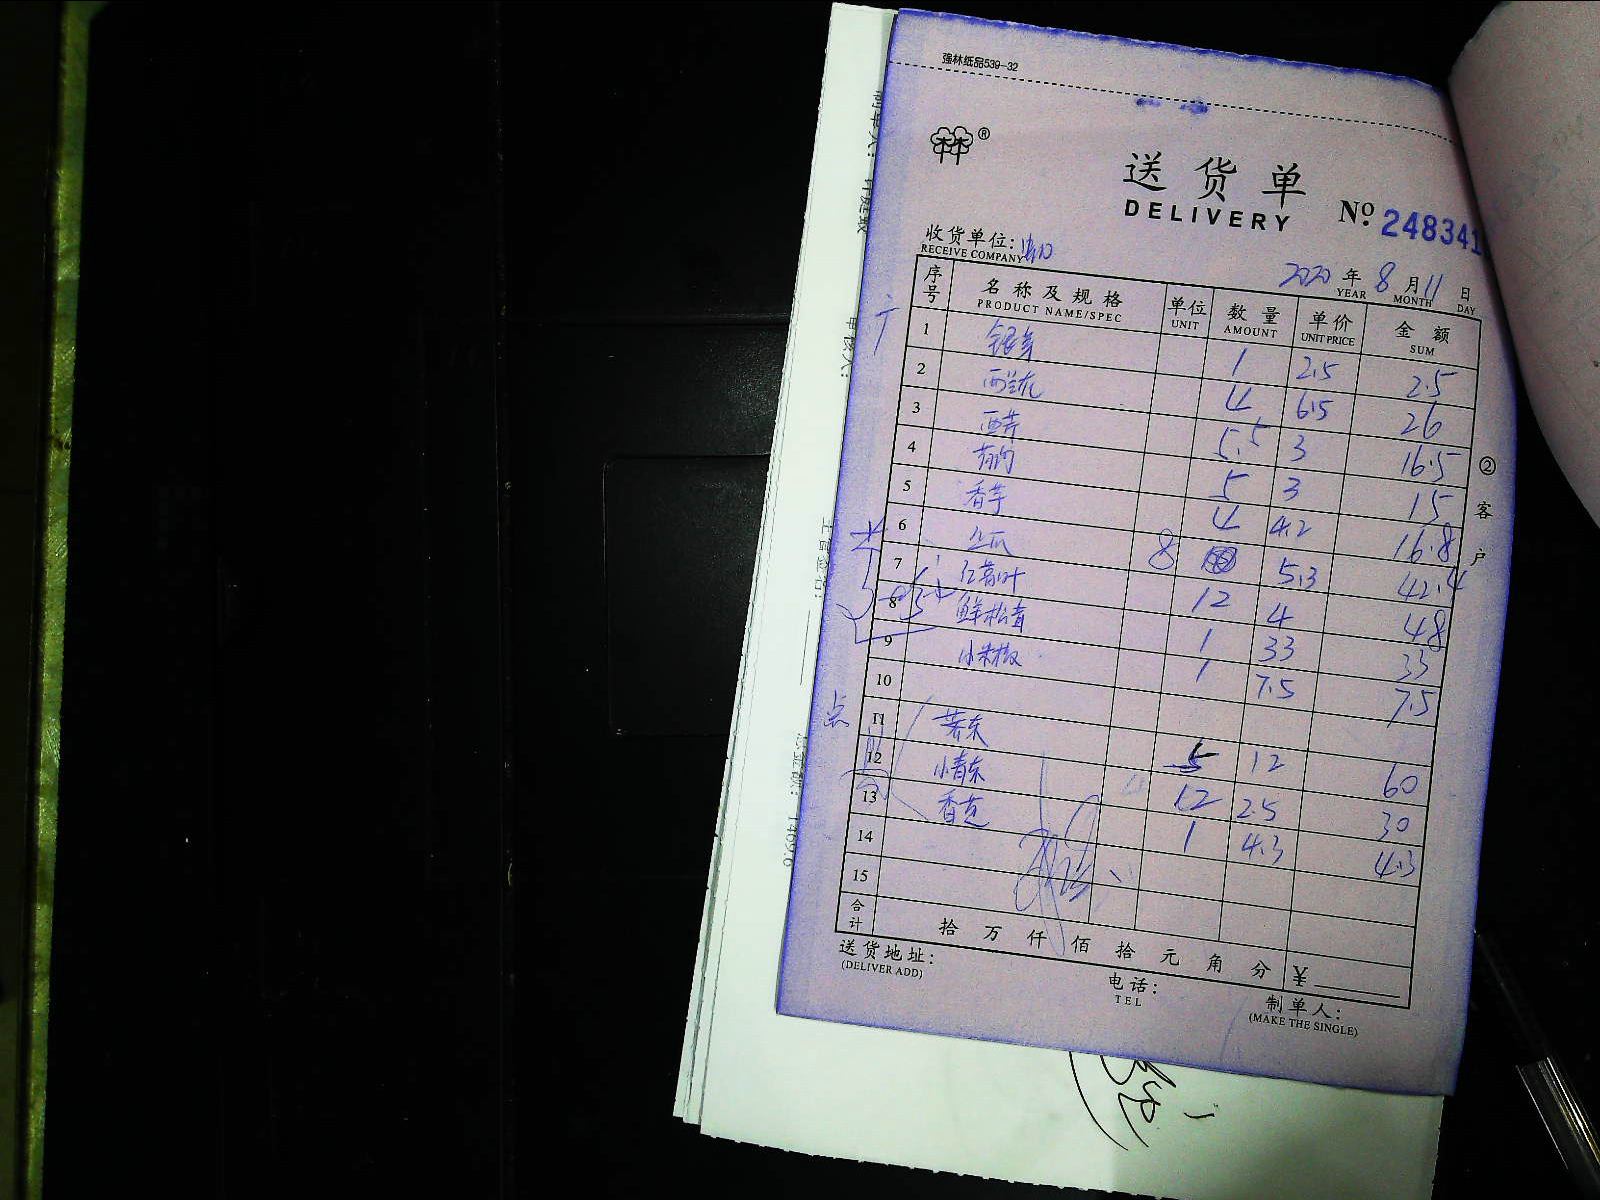 强林纸品539-32
®
送货单
DELIVERY
Nº 248341
收货单位:
RECEIVE COMPANY
2020 年 8 月 11 日
YEAR MONTH DAY
序号 名称及规格 单位 数量 单价 金额
PRODUCT NAME/SPEC UNIT AMOUNT UNIT PRICE SUM
1 银芽 1 2.5 2.5
2 西兰花 4 6.5 26
3 西芹 5.5 3 16.5
4 5 3 15
5 香芋 4 4.2 16.8
6 8 5.3 42.4
7 红薯叶 12 4 48
8 鲜松茸 1 33 33
9 小米椒 1 7.5 7.5
10
11 5 12 60
12 12 2.5 30
13 香芒 1 4.3 4.3
14
15
合计 拾 万 仟 佰 拾 元 角 分 ¥
送货地址:
(DELIVER ADD)
电话:
TEL
制单人:
(MAKE THE SINGLE)
②客户
点
制单人:
审核人:
主管签名:
1469.6